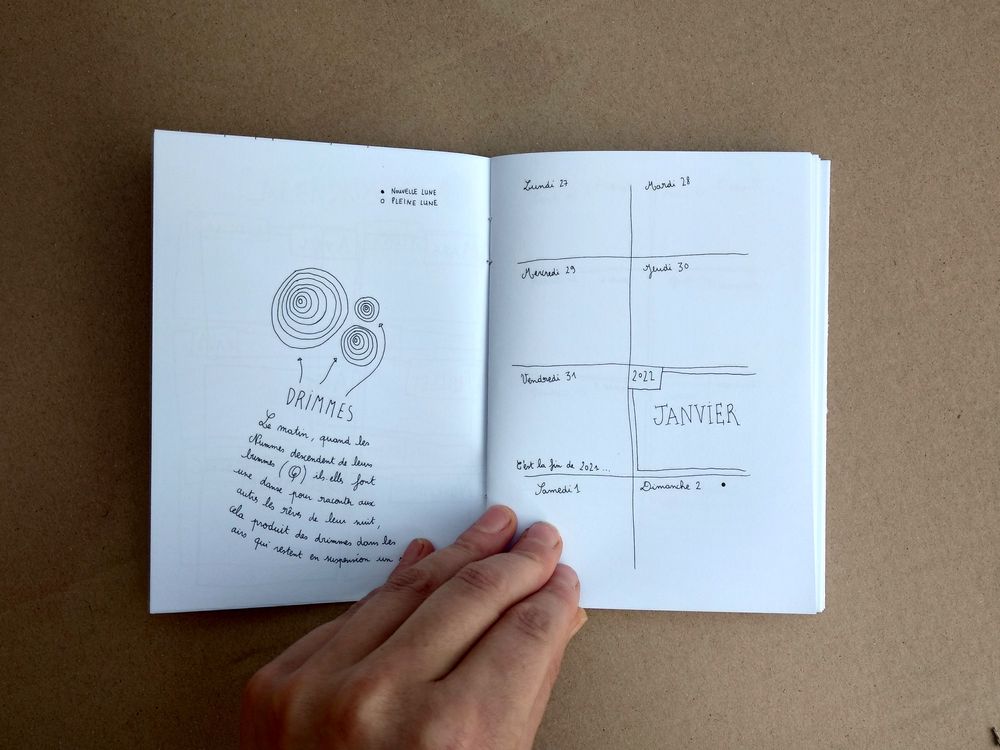 ● NOUVELLE LUNE
○ PLEINE LUNE
DRIMMES
Le matin, quand les
Nummes descendent de leurs
brumes ( ) ils·elles font
une danse pour raconter aux
autres les rêves de leur nuit,
cela produit des drimmes dans les
airs qui restent en suspension un
Lundi 27
Mardi 28
Mercredi 29
Jeudi 30
Vendredi 31
2022
JANVIER
C'est la fin de 2021...
Samedi 1
Dimanche 2 ●